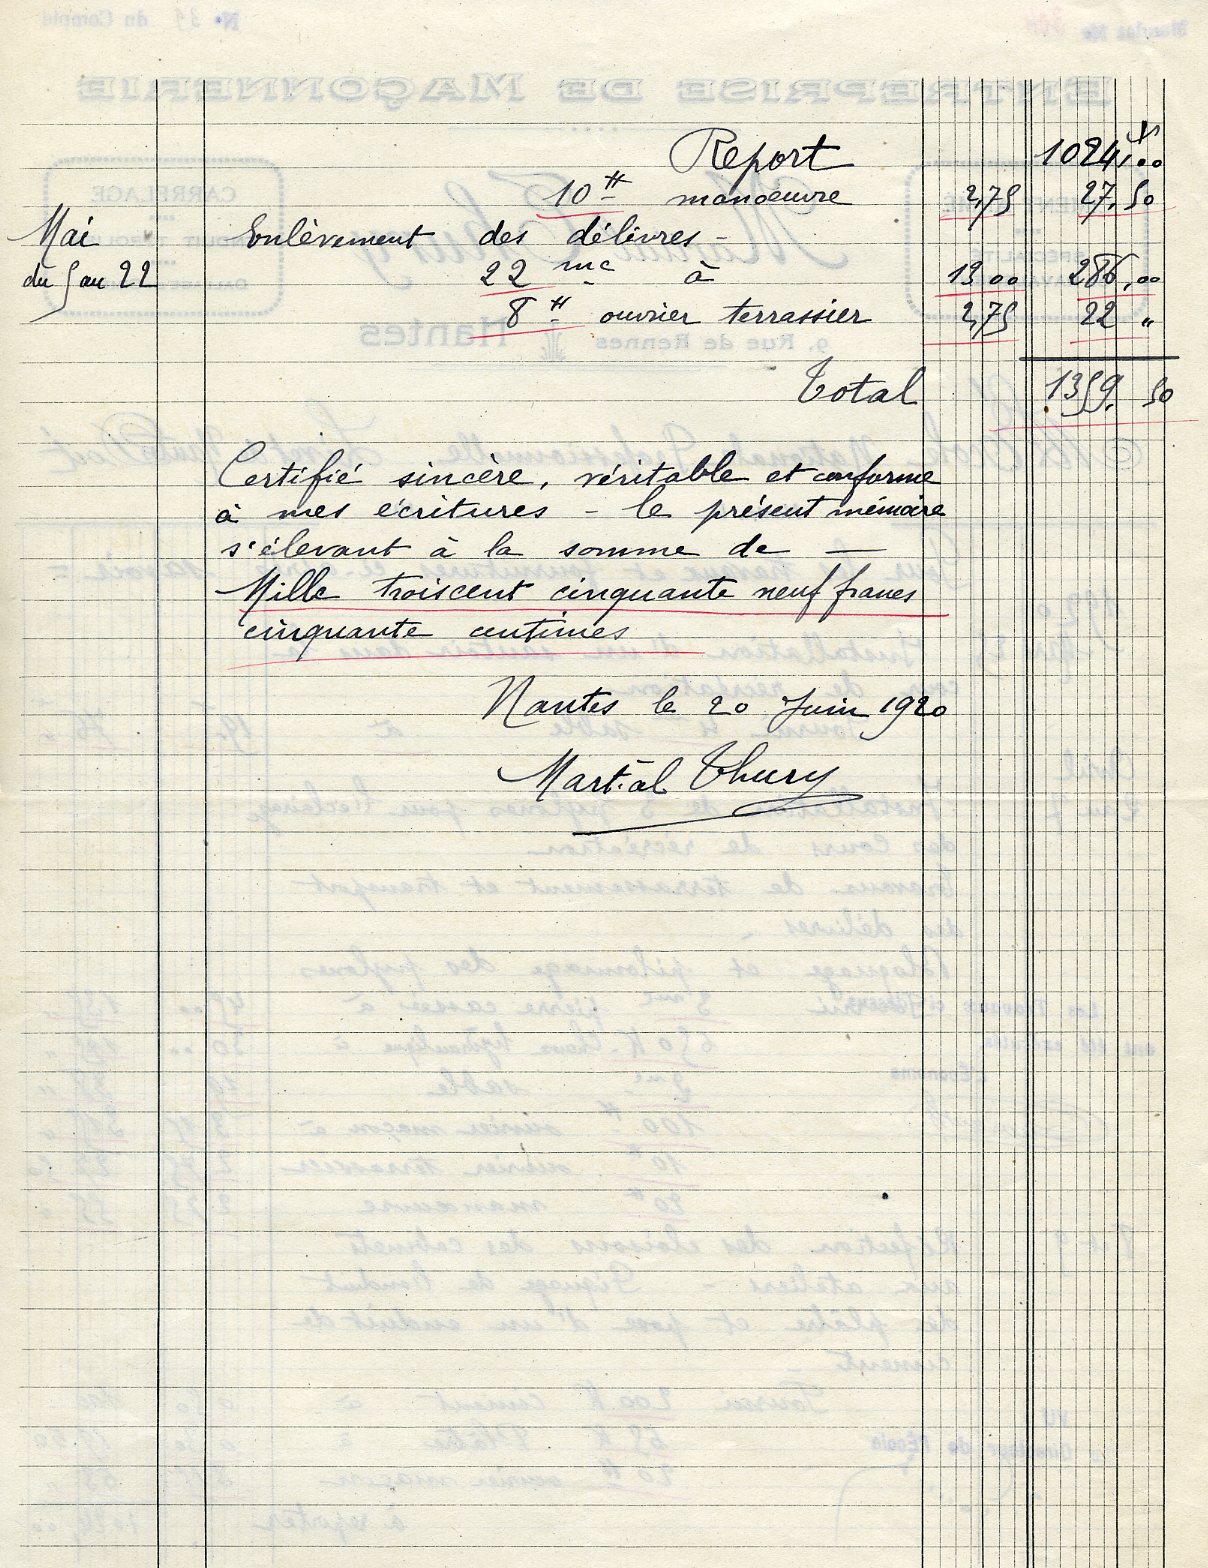 Report 1024,00
10 H manœuvre 2,75 27,50
Mai Enlèvement des délivres -
du 5 au 22 22 mc à 13 00 286,00
8 H ouvrier terrassier 2,75 22 "
Total 1359, 50
Certifié sincère, véritable et conforme
à mes écritures - le présent mémoire
s'élevant à la somme de —
Mille troiscent cinquante neuf francs
cinquante centimes
Nantes le 20 Juin 1920
Martial Thury